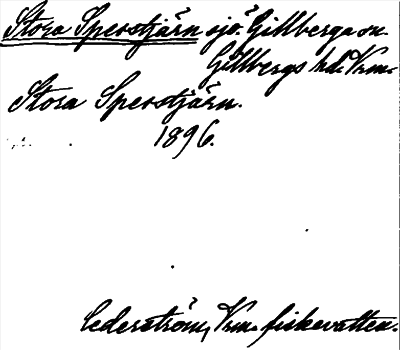 Stora Sperstjärn sjö i Gillberga sn.
Gillbergs hd. Vrm.
Stora Sperstjärn.
1896.
Cederström, Vrm. fiskevatten.